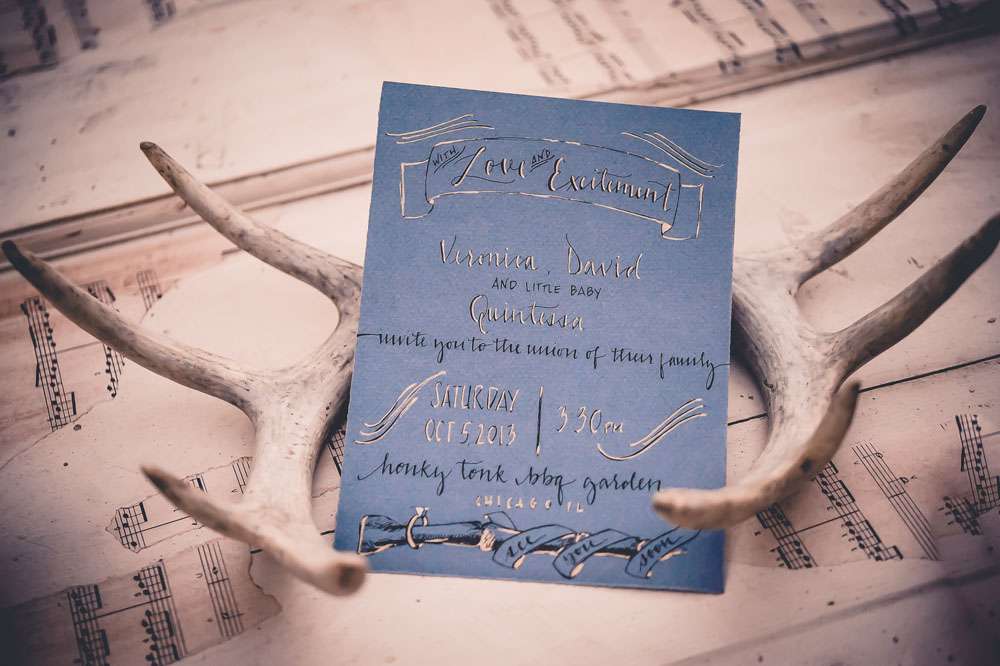 WITH Love AND Excitement
Veronica, David
AND LITTLE BABY
Quintessa
invite you to the union of their family
SATURDAY
OCT 5 2013
3:30 PM
honky tonk bbq garden
CHICAGO IL
see you soon